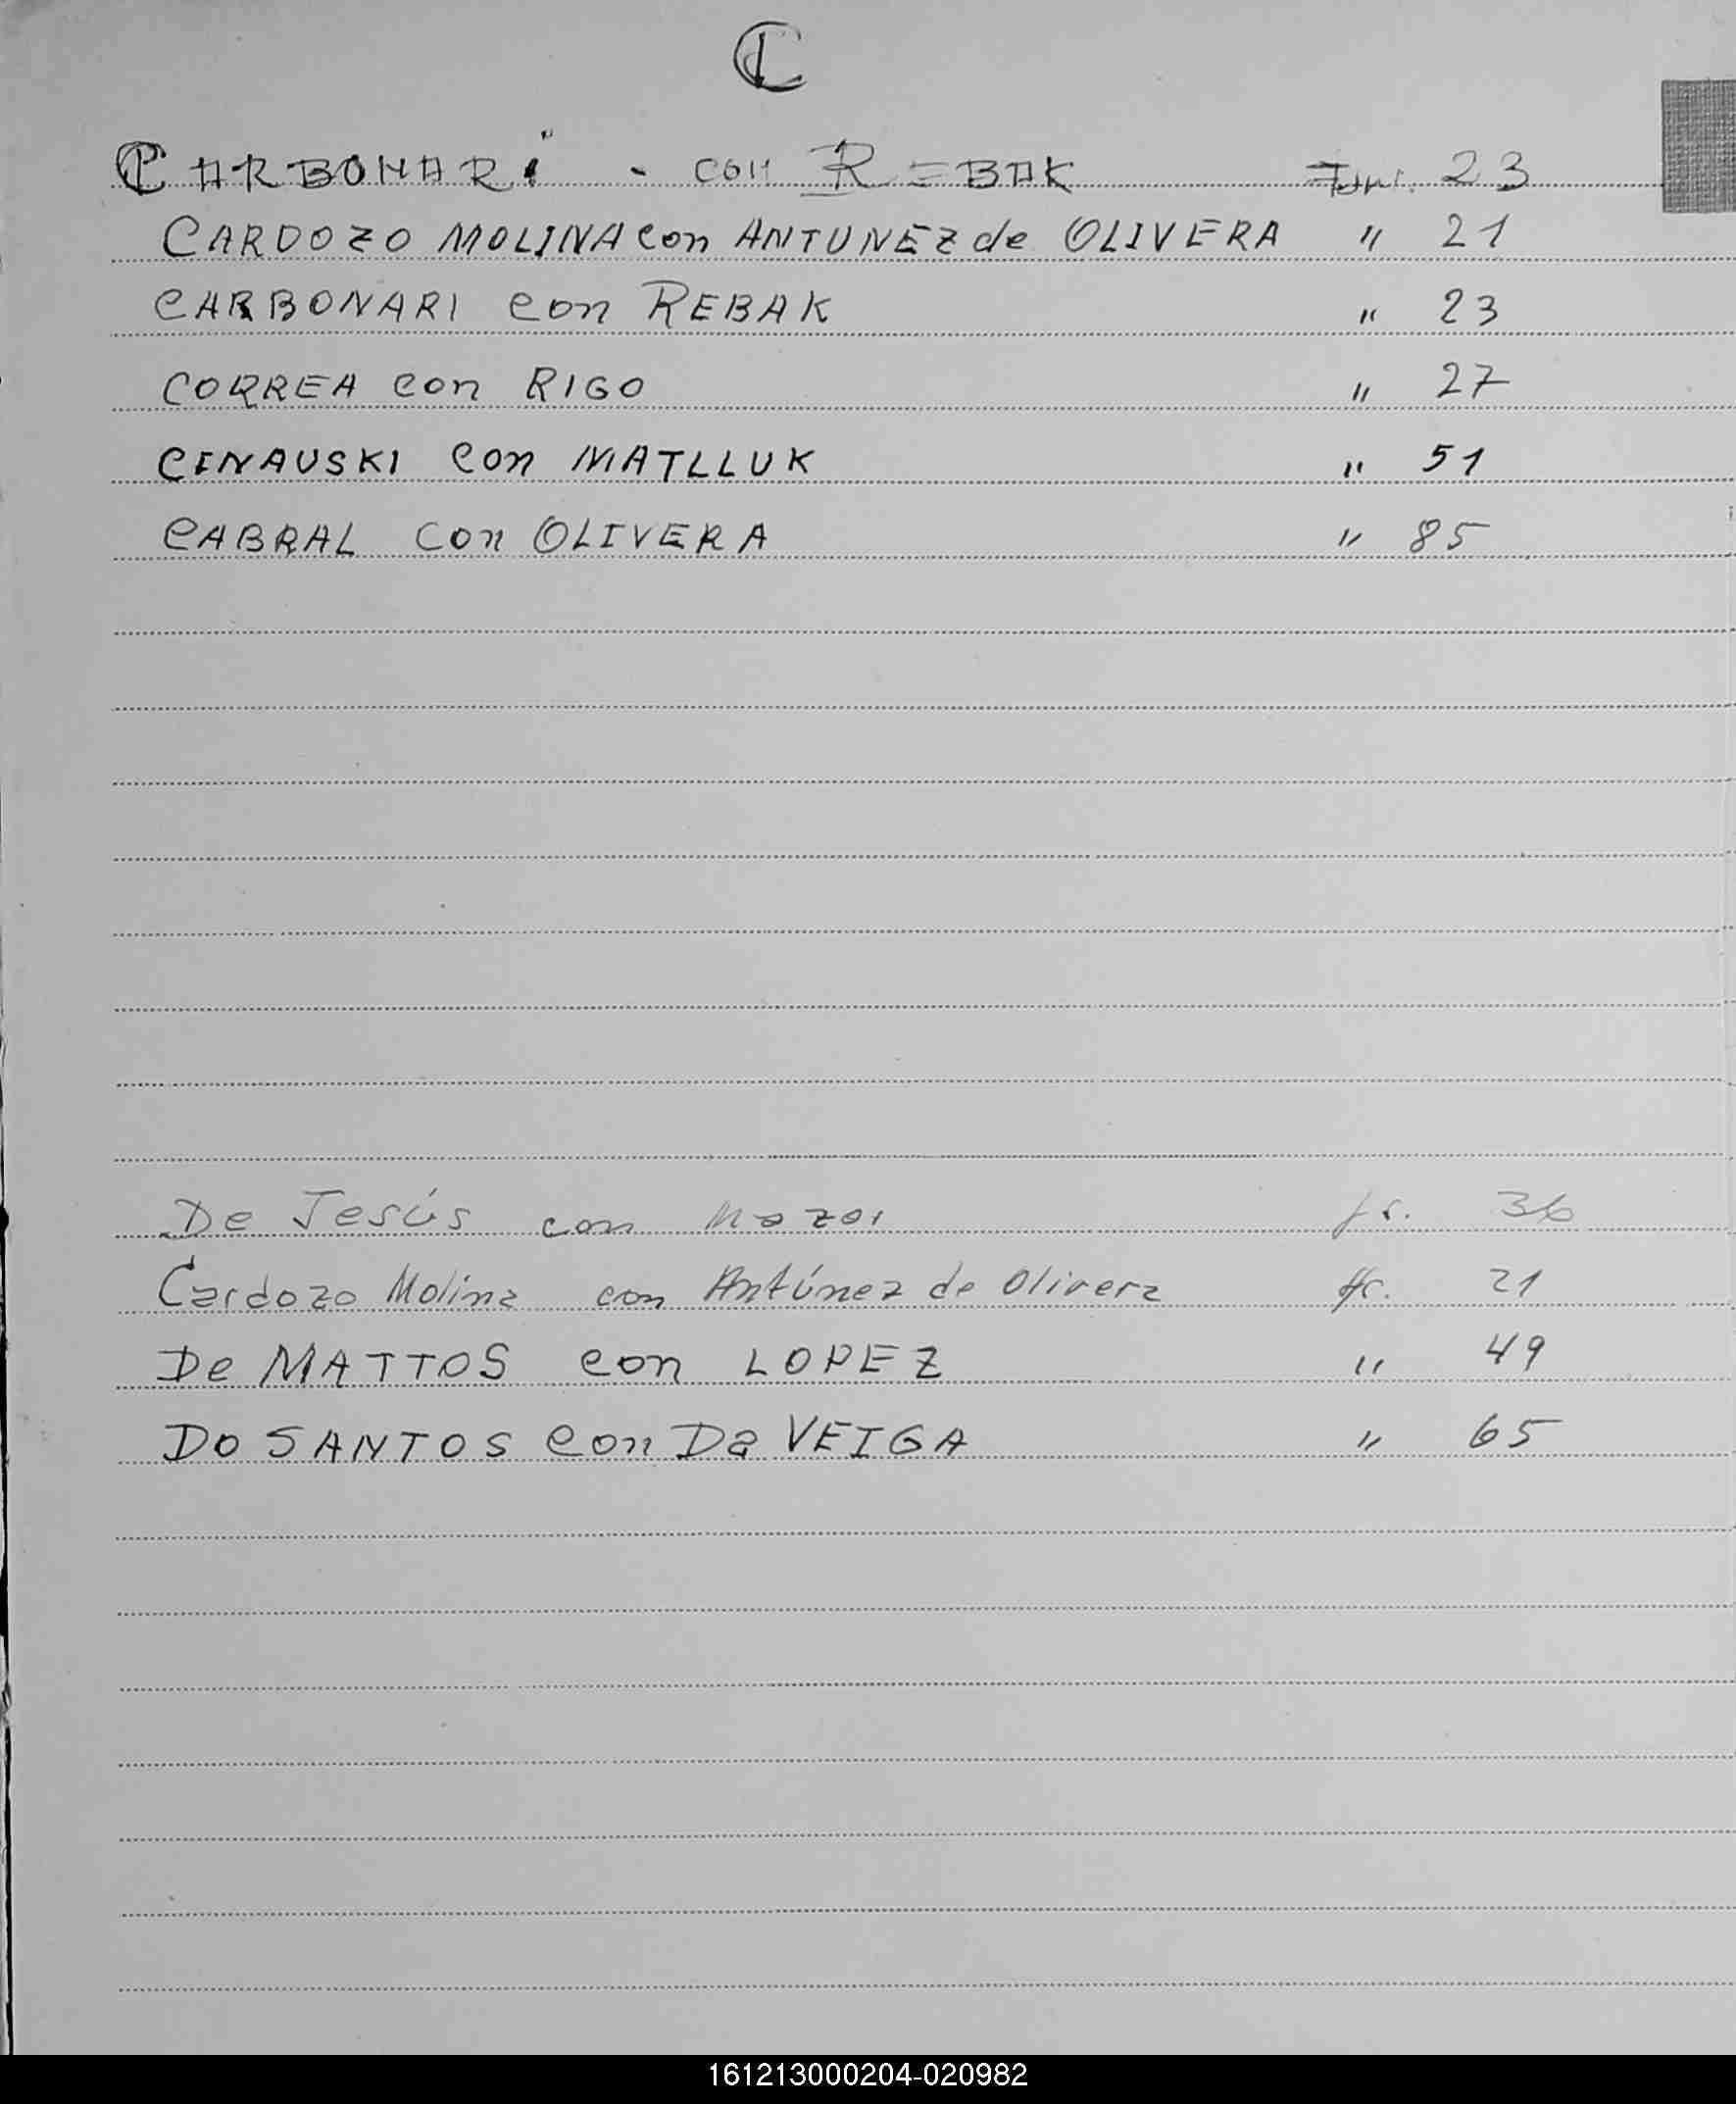 C
CARBONARi - con REBAK 23
CARDOZO MOLINA con ANTUNEZ de OLIVERA " 21
CARBONARI con REBAK " 23
CORREA con RIGO " 27
CENAUSKI con MATLLUK " 51
CABRAL con OLIVERA " 85
De Jesús con 36
Cardozo Molina con Antúnez de Olivera 21
De MATTOS con LOPEZ " 49
DO SANTOS con Da VEIGA " 65
161213000204-020982